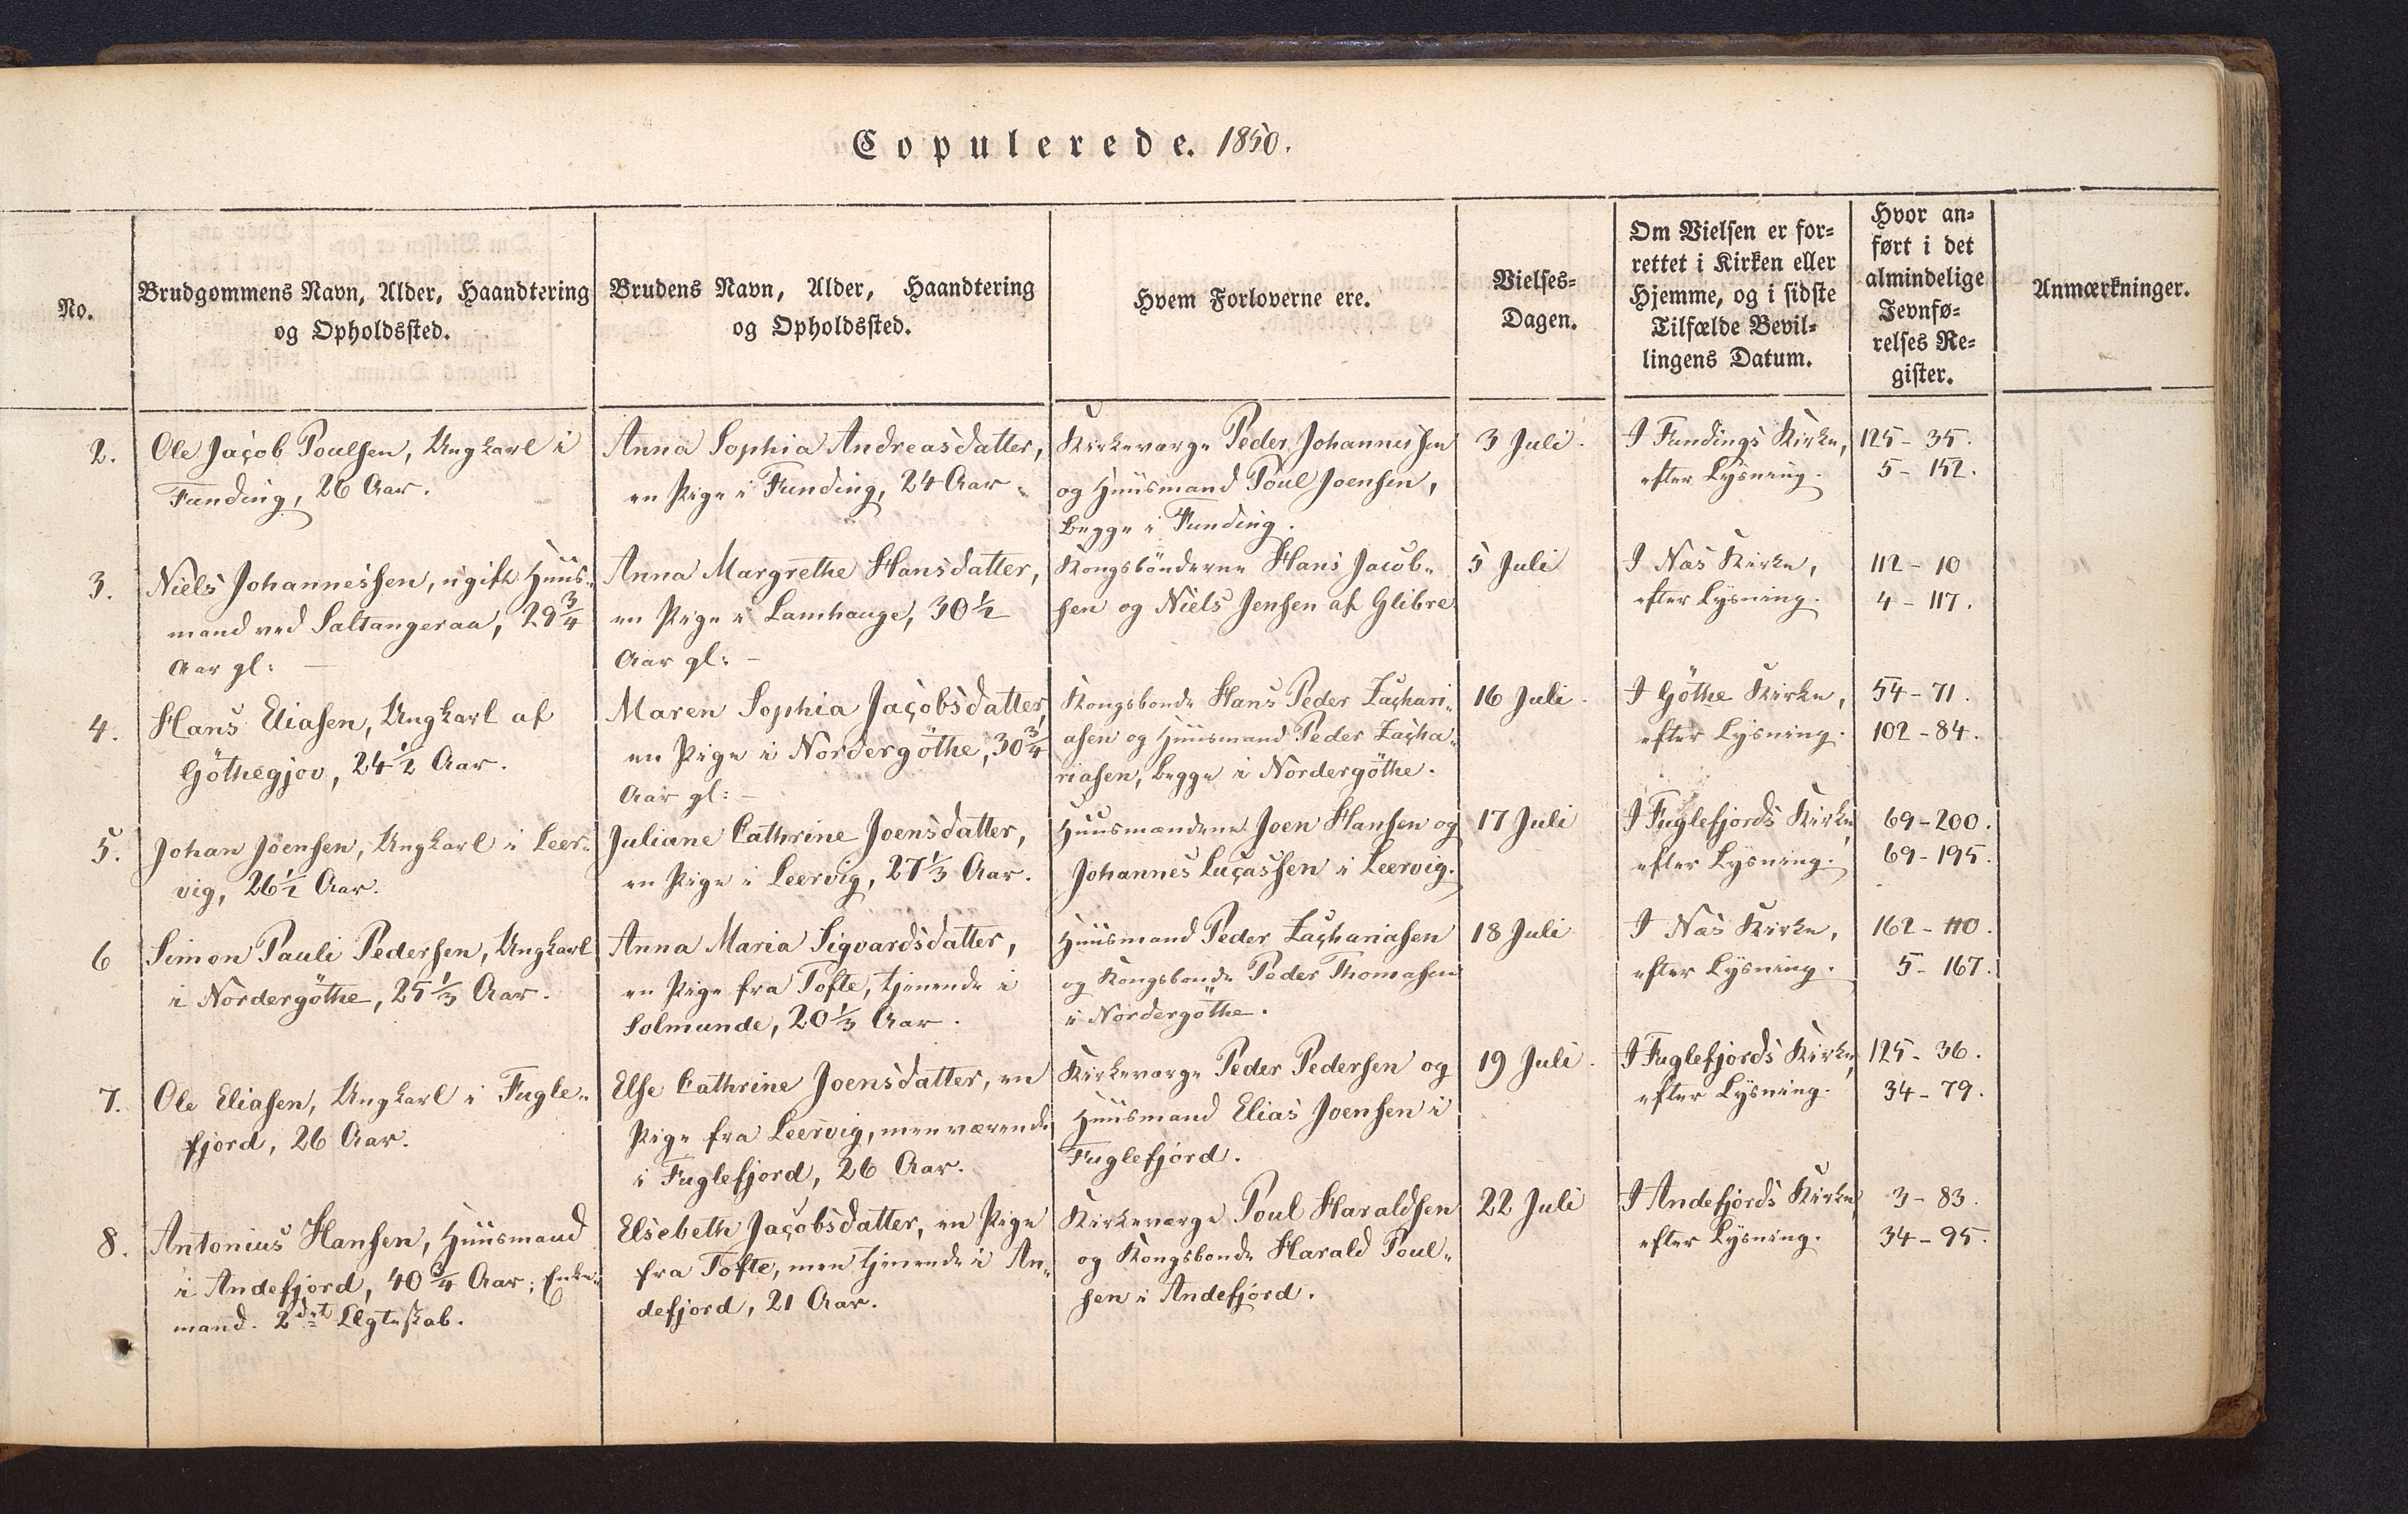 Copulerede. 1850.
No.
Brudgommens Navn, Alder, Haandtering
og Opholdssted.
Brudens Navn, Alder, Haandtering
og Opholdssted.
Hvem Forloverne ere.
Vielses-
Dagen.
Om Vielsen er for-
rettet i Kirken eller
Hjemme, og i sidste
Tilfælde Bevil-
lingens Datum.
Hvor an-
ført i det
almindelige
Jevnfø-
relses Re-
gister.
Anmærkninger.
2.
Ole Jacob Poulsen, Ungkarl i
Funding, 26 Aar.
Anna Sophia Andreasdatter,
en Pige i Funding, 24 Aar.
Kirkeværge Peder Johannessen
og Huusmand Poul Joensen,
begge i Funding.
3 Juli.
I Fundings Kirke,
efter Lysning.
125 - 35.
5 - 152.
3.
Niels Johannessen, ugift Huus-
mand ved Saltangeraa, 29 3/4
Aar gl: —
Anna Margrethe Hansdatter,
en Pige i Lamhauge, 30 1/2
Aar gl: —
Kongsbönderne Hans Jacob-
sen og Niels Jensen af Glibre
5 Juli
I Nas Kirke,
efter Lysning.
112 - 10
4 - 117.
4.
Hans Eliasen, Ungkarl af
Göthegjov, 24 1/2 Aar.
Maren Sophia Jacobsdatter,
en Pige i Nordergöthe, 30 3/4
Aar gl: —
Kongsbonde Hans Peder Zachari-
asen og Huusmand Peder Zacha-
riasen, begge i Nordergöthe.
16 Juli.
I Göthe Kirke,
efter Lysning.
54 - 71.
102 - 84.
5.
Johan Joensen, Ungkarl i Leer-
vig, 26 1/2 Aar.
Juliane Cathrine Joensdatter,
en Pige i Leervig, 27 1/3 Aar.
Huusmændene Joen Hansen og
Johannes Lucassen i Leervig.
17 Juli
I Fuglefjords Kirke,
efter Lysning.
69 - 200.
69 - 195.
6
Simon Pauli Pedersen, Ungkarl
i Nordergöthe, 25 1/3 Aar.
Anna Maria Sigvardsdatter,
en Pige fra Tofte, tjenende i
Solmunde, 20 1/3 Aar.
Huusmand Peder Zachariasen
og Kongsbonde Peder Thomasen
i Nordergöthe.
18 Juli
I Nas Kirke,
efter Lysning.
162 - 110.
5 - 167.
7.
Ole Eliasen, Ungkarl i Fugle-
fjord, 26 Aar.
Else Cathrine Joensdatter, en
Pige fra Leervig, men værende
i Fuglefjord, 26 Aar.
Kirkeværge Peder Pedersen og
Huusmand Elias Joensen i
Fuglefjord.
19 Juli.
I Fuglefjords Kirke,
efter Lysning.
125 - 36.
34 - 79.
8.
Antonius Hansen, Huusmand
i Andefjord, 40 3/4 Aar; Enke-
mand. 2det Ægteskab.
Elsebeth Jacobsdatter, en Pige
fra Tofte, men tjenende i An-
defjord, 21 Aar.
Kirkeværge Poul Haraldsen
og Kongsbonde Harald Poul-
sen i Andefjord.
22 Juli
I Andefjords Kirke,
efter Lysning.
3 - 83.
34 - 95.